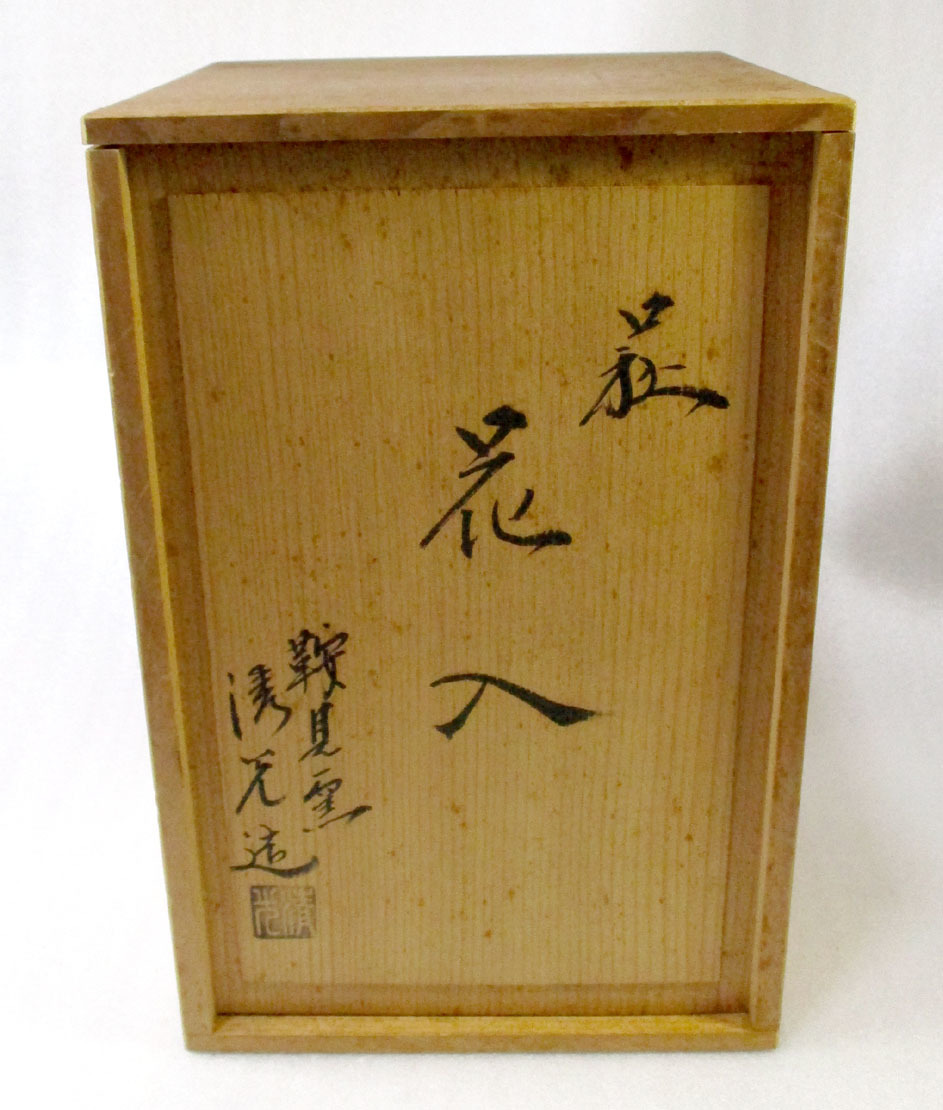 萩
花入
鞍見窯
清光造
清光